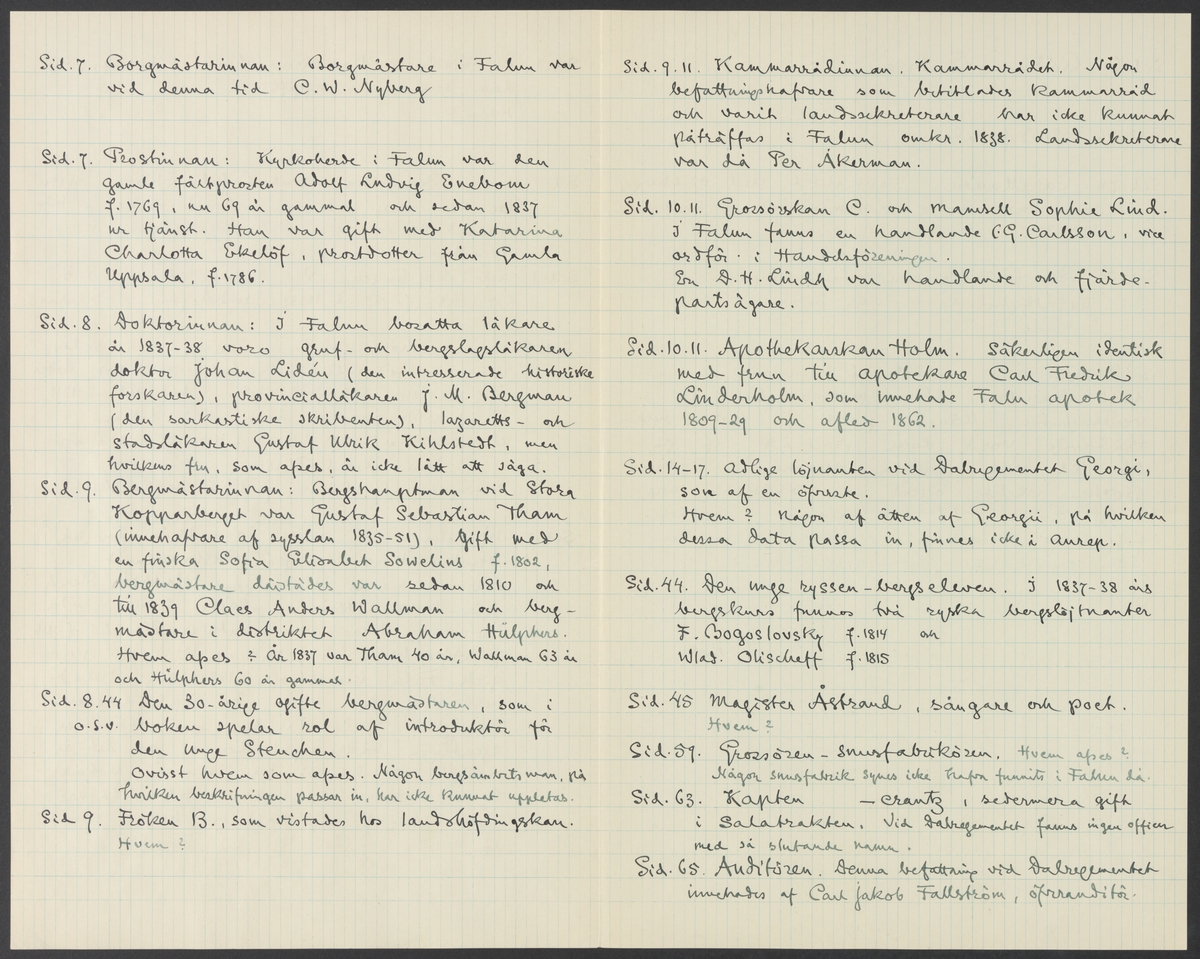 Sid. 7. Borgmästarinnan: Borgmästare i Falun var
vid denna tid C. W. Nyberg
Sid. 7. Prostinnan: Kyrkoherde i Falun var den
gamle fältprosten Adolf Ludvig Enebom
f. 1769, nu 69 år gammal och sedan 1837
ur tjänst. Han var gift med Katarina
Charlotta Ekelöf, prostdotter från Gamla
Uppsala, f. 1786.
Sid. 8. Doktorinnan: I Falun bosatta läkare
år 1837-38 voro gruf- och bergslagsläkaren
doktor Johan Lidén (den intresserade historiske
forskaren), provincialläkaren J. M. Bergman
(den sarkastiske skribenten), lazaretts- och
stadsläkaren Gustaf Ulrik Kihlstedt, men
hvilkens fru, som afses, är icke lätt att säga.
Sid. 9. Bergmästarinnan: Bergshauptman vid Stora
Kopparberget var Gustaf Sebastian Tham
(innehafvare af sysslan 1835-51), gift med
en finska Sofia Elisabet Sowelius f. 1802,
bergmästare därstädes var sedan 1810 och
till 1839 Claes Anders Wallman och berg-
mästare i distriktet Abraham Hülphers.
Hvem afses? År 1837 var Tham 40 år, Wallman 63 år
och Hülphers 60 år gammal.
Sid. 8. 44 Den 30-årige ogifte bergmästaren, som i
o.s.v. boken spelar rol af introduktör för
den unge Stenchen.
Ovisst hvem som afses. Någon bergsämbetsman, på
hvilken beskrifningen passar in, har icke kunnat uppletas.
Sid 9. Fröken B., som vistades hos landshöfdingskan.
Hvem?
Sid. 9. 11. Kammarrådinnan. Kammarrådet. Någon
befattningshafvare som betitlades kammarråd
och varit landssekreterare har icke kunnat
påträffas i Falun omkr. 1838. Landssekreterare
var då Per Åkerman.
Sid. 10. 11. Grossörskan C. och mamsell Sophie Lind.
I Falun fanns en handlande C. G. Carlsson, vice
ordför. i Handelsföreningen.
En D. H. Lindh var handlande och fjärde-
partsägare.
Sid. 10. 11. Apothekarskan Holm. Säkerligen identisk
med frun till apotekare Carl Fredrik
Linderholm, som innehade Falu apotek
1809-29 och afled 1862.
Sid. 14-17. Adlige löjtnanten vid Dalregementet Georgi,
son af en öfverste.
Hvem? Någon af ätten af Georgii, på hvilken
dessa data passa in, finnes icke i Anrep.
Sid. 44. Den unge ryssen - bergseleven. I 1837-38 års
bergskurs funnos två ryska bergslöjtnanter
F. Bogoslovsky f. 1814 och
Wlad. Olischeff f. 1815
Sid. 45 Magister Åstrand, sångare och poet.
Hvem?
Sid. 59. Grossören - snusfabrikören. Hvem afses?
Någon snusfabrik synes icke hafva funnits i Falun då.
Sid. 63. Kapten - crantz, sedermera gift
i Salatrakten. Vid Dalregementet fanns ingen officer
med så slutande namn.
Sid. 65. Auditören. Denna befattning vid Dalregementet
innehades af Carl Jakob Fallström, öfverauditör.